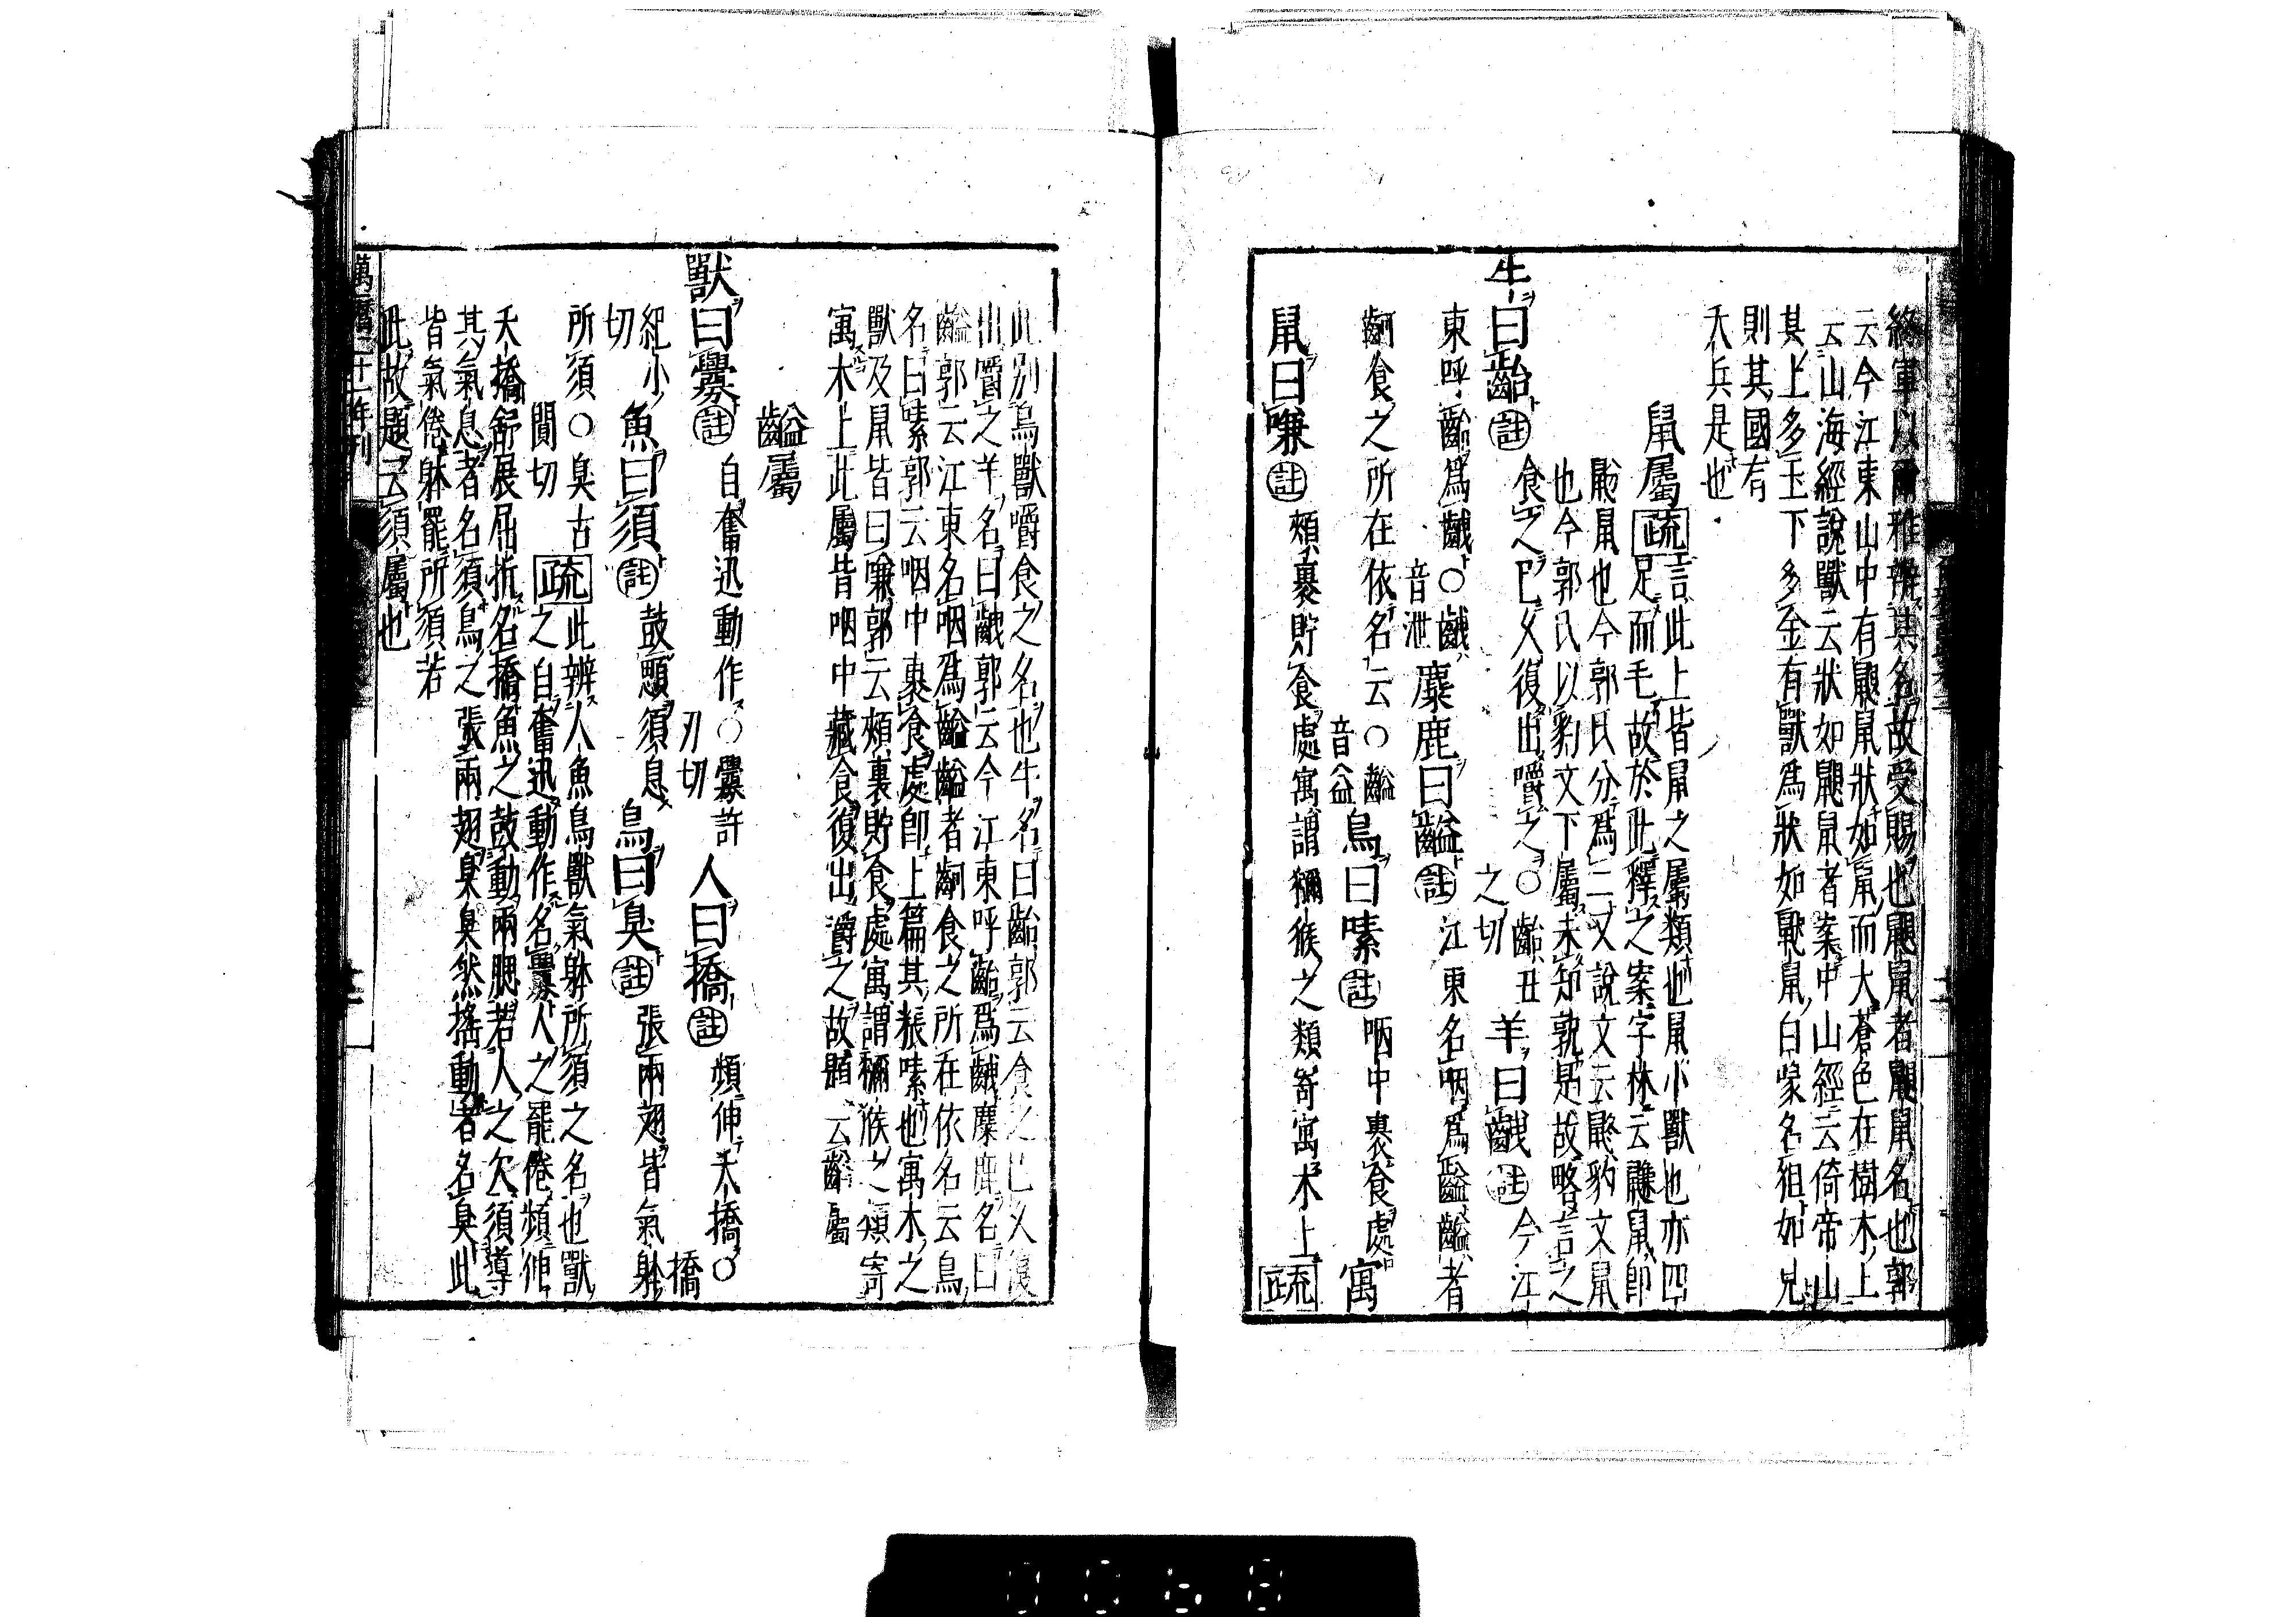 終軍以爾雅辨其名故受賜也鼮鼠者鼮鼠名也郭
云今江東山中有鼳鼠狀如鼠而大蒼色在樹木上
云山海經說獸云狀如鼣鼠者案中山經云倚帝山
其上多玉下多金有獸爲狀如鼣鼠白喙名狙如見
則其國有
大兵是也
鼠屬疏言此上皆鼠之屬類也鼠小獸也亦四
足而毛故於此釋之案字林云鼨鼠卽
鼢鼠也今郭氏分爲二又說文云鼨豹文鼠
也今郭氏以豹文下屬未知孰是故略言之
牛曰齝註食之已久復出嚼之○齝丑
之切
羊曰齥註今江
東呼齝爲齥○齥
音泄
麋鹿曰齸註江東名咽爲齸齸者
齝食之所在依名云○齸
音益
鳥曰嗉註咽中裹食處
寓
鼠曰嗛註頰裏貯食處寓謂獼猴之類寄寓木上
疏
此別鳥獸嚼食之名也牛名曰齝郭云食之已久復
出嚼之羊名曰齥郭云今江東呼齝爲齥麋鹿名曰
齸郭云江東名咽爲齸齸者齝食之所在依名云鳥
名曰嗉郭云咽中裹食處卽上篇其粻嗉也寓木之
獸及鼠皆曰嗛郭云頰裏貯食處寓謂獼猴之類寄
寓木上此屬皆咽中藏食復出嚼之故題云齝屬
齸屬
獸曰釁註自奮迅動作○釁許
刃切
人曰撟註頻伸夭撟○
撟
紀小
切
魚曰須註鼓顋須息
鳥曰狊註張兩翅皆氣躰
所須○狊古
闃切
疏此辨人魚鳥獸氣躰所須之名也獸
之自奮迅動作名釁人之罷倦頻伸
夭撟舒展屈折名撟魚之鼓動兩腮若人之欠須導
其氣息者名須鳥之張兩翅狊狊然搖動者名狊此
皆氣倦躰罷所須若
此故題云須屬也
萬曆二十一年刊